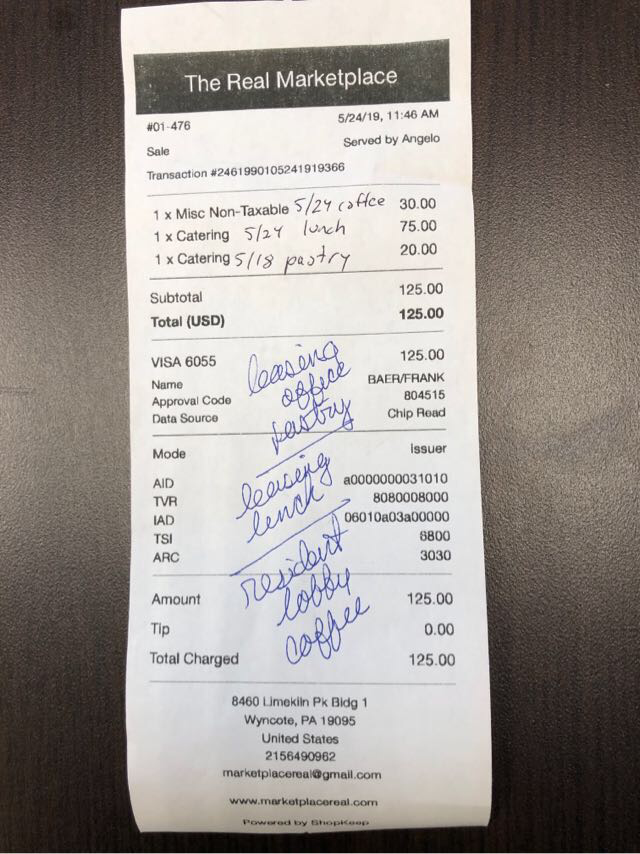 The Real Marketplace
#01-476 5/24/19, 11:46 AM
Sale Served by Angelo
Transaction #2461990105241919366
1 x Misc Non-Taxable 5/24 coffee 30.00
1 x Catering 5/24 lunch 75.00
1 x Catering 5/18 pastry 20.00
Subtotal 125.00
Total (USD) 125.00
VISA 6055 125.00
Name BAER/FRANK
Approval Code 804515
Data Source Chip Read
leasing
office
pastry
Mode Issuer
AID a0000000031010
TVR 8080008000
IAD 06010a03a00000
TSI 6800
ARC 3030
leasing
lunch
resident
lobby
coffee
Amount 125.00
Tip 0.00
Total Charged 125.00
8460 Limekiln Pk Bldg 1
Wyncote, PA 19095
United States
2156490962
marketplacereal@gmail.com
www.marketplacereal.com
Powered by ShopKeep